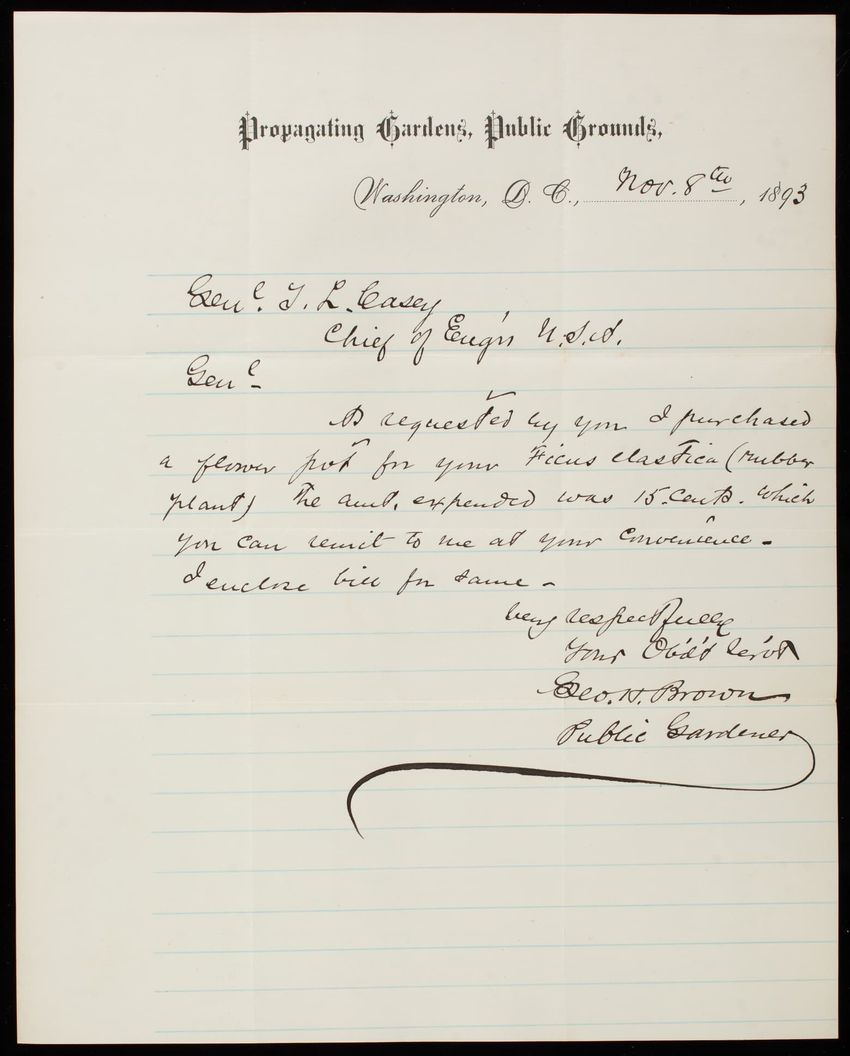 Propagating Gardens, Public Grounds,
Washington, D. C., Nov. 8th, 1893
Genl. T. L. Casey
Chief of Eng'rs U.S.A.
Genl-
As requested by you I purchased
a flower pot for your Ficus elastica (rubber
plant) The amt. expended was 15 cents. which
you can remit to me at your convenience-
I enclose bill for same-
Very respectfully
Your Ob'd't Serv't
Geo. H. Brown
Public Gardener